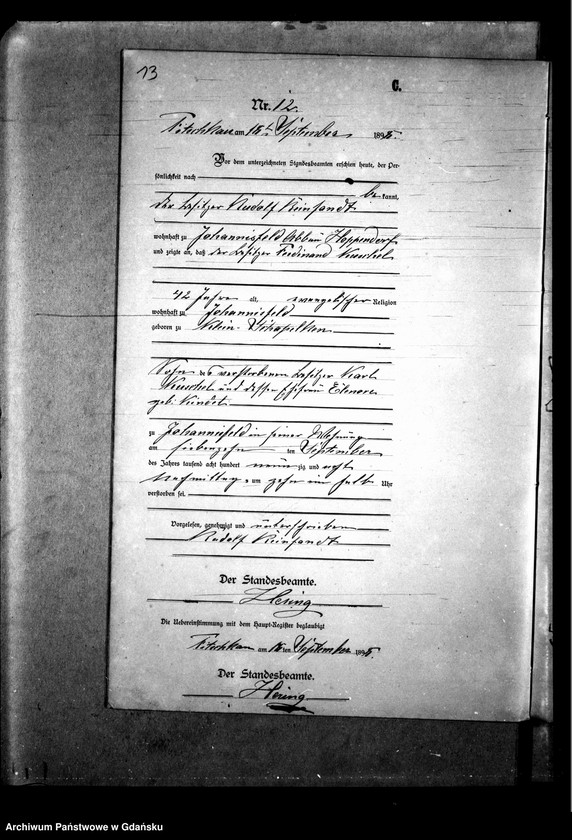 13
C.
Nr. 12.
am 18ten September 1898.
Vor dem unterzeichneten Standesbeamten erschien heute, der Per-
sönlichkeit nach
be kannt,
der Besitzer Rudolf Reinsandt
wohnhaft zu Johannisfeld Abbau Hoppendorf
und zeigte an, daß der Besitzer Ferdinand Kuschel
42 Jahre alt, evangelischer Religion
wohnhaft zu Johannisfeld
geboren zu Klein-
Sohn des verstorbenen Besitzer Karl
Kuschel und dessen Ehefrau Eleonore
geb.
zu Johannisfeld in seiner Wohnung
am siebenzehnten September
des Jahres tausend acht hundert neun zig und acht
Nachmittags um zehn ein halb Uhr
verstorben sei.
Vorgelesen, genehmigt und unterschrieben
Rudolf Reinsandt
Der Standesbeamte.
Hering
Die Uebereinstimmung mit dem Haupt-Register beglaubigt
am 18ten September 1898.
Der Standesbeamte.
Hering
Archiwum Państwowe w Gdańsku